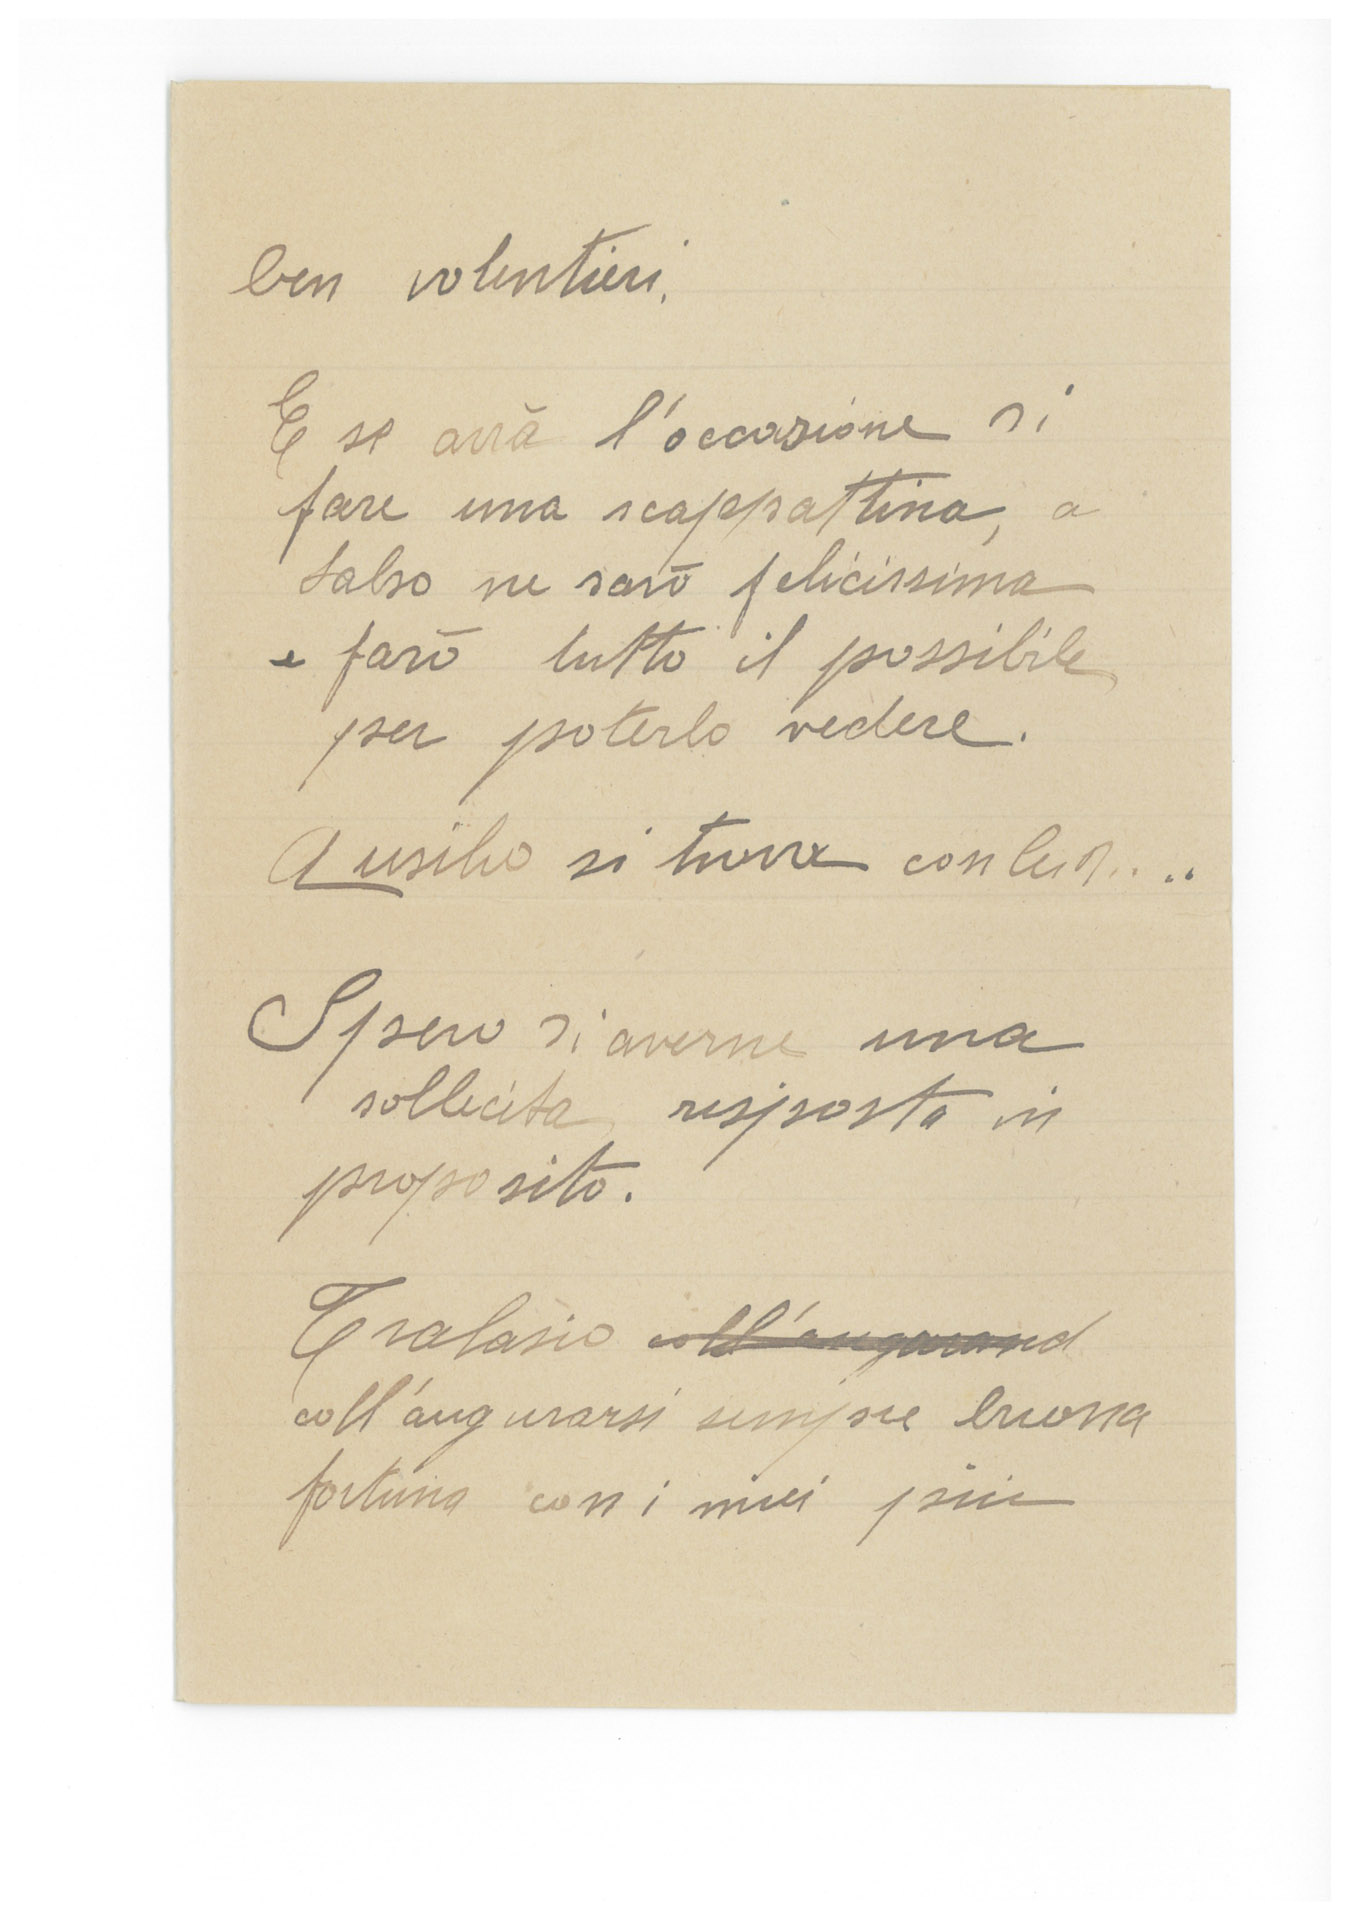 ben volentieri.
E se avrà l'occasione di
fare una scappattina, a
Salso ne sarò felicissima
e farò tutto il possibile
per poterlo vedere.
Ausilio si trova con lei?....
Spero di averne una
sollecita risposta in
proposito.
Tralasio coll'augurand
coll'augurarsi sempre buona
fortuna con i miei più